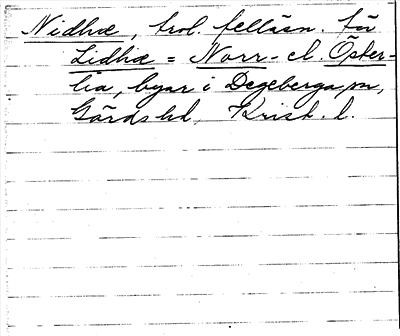 Nidhæ, trol. felläsn. för
Lidhæ = Norr- el. Öster-
lia, byar i Degeberga sn,
Gärds hd, Krist. l.